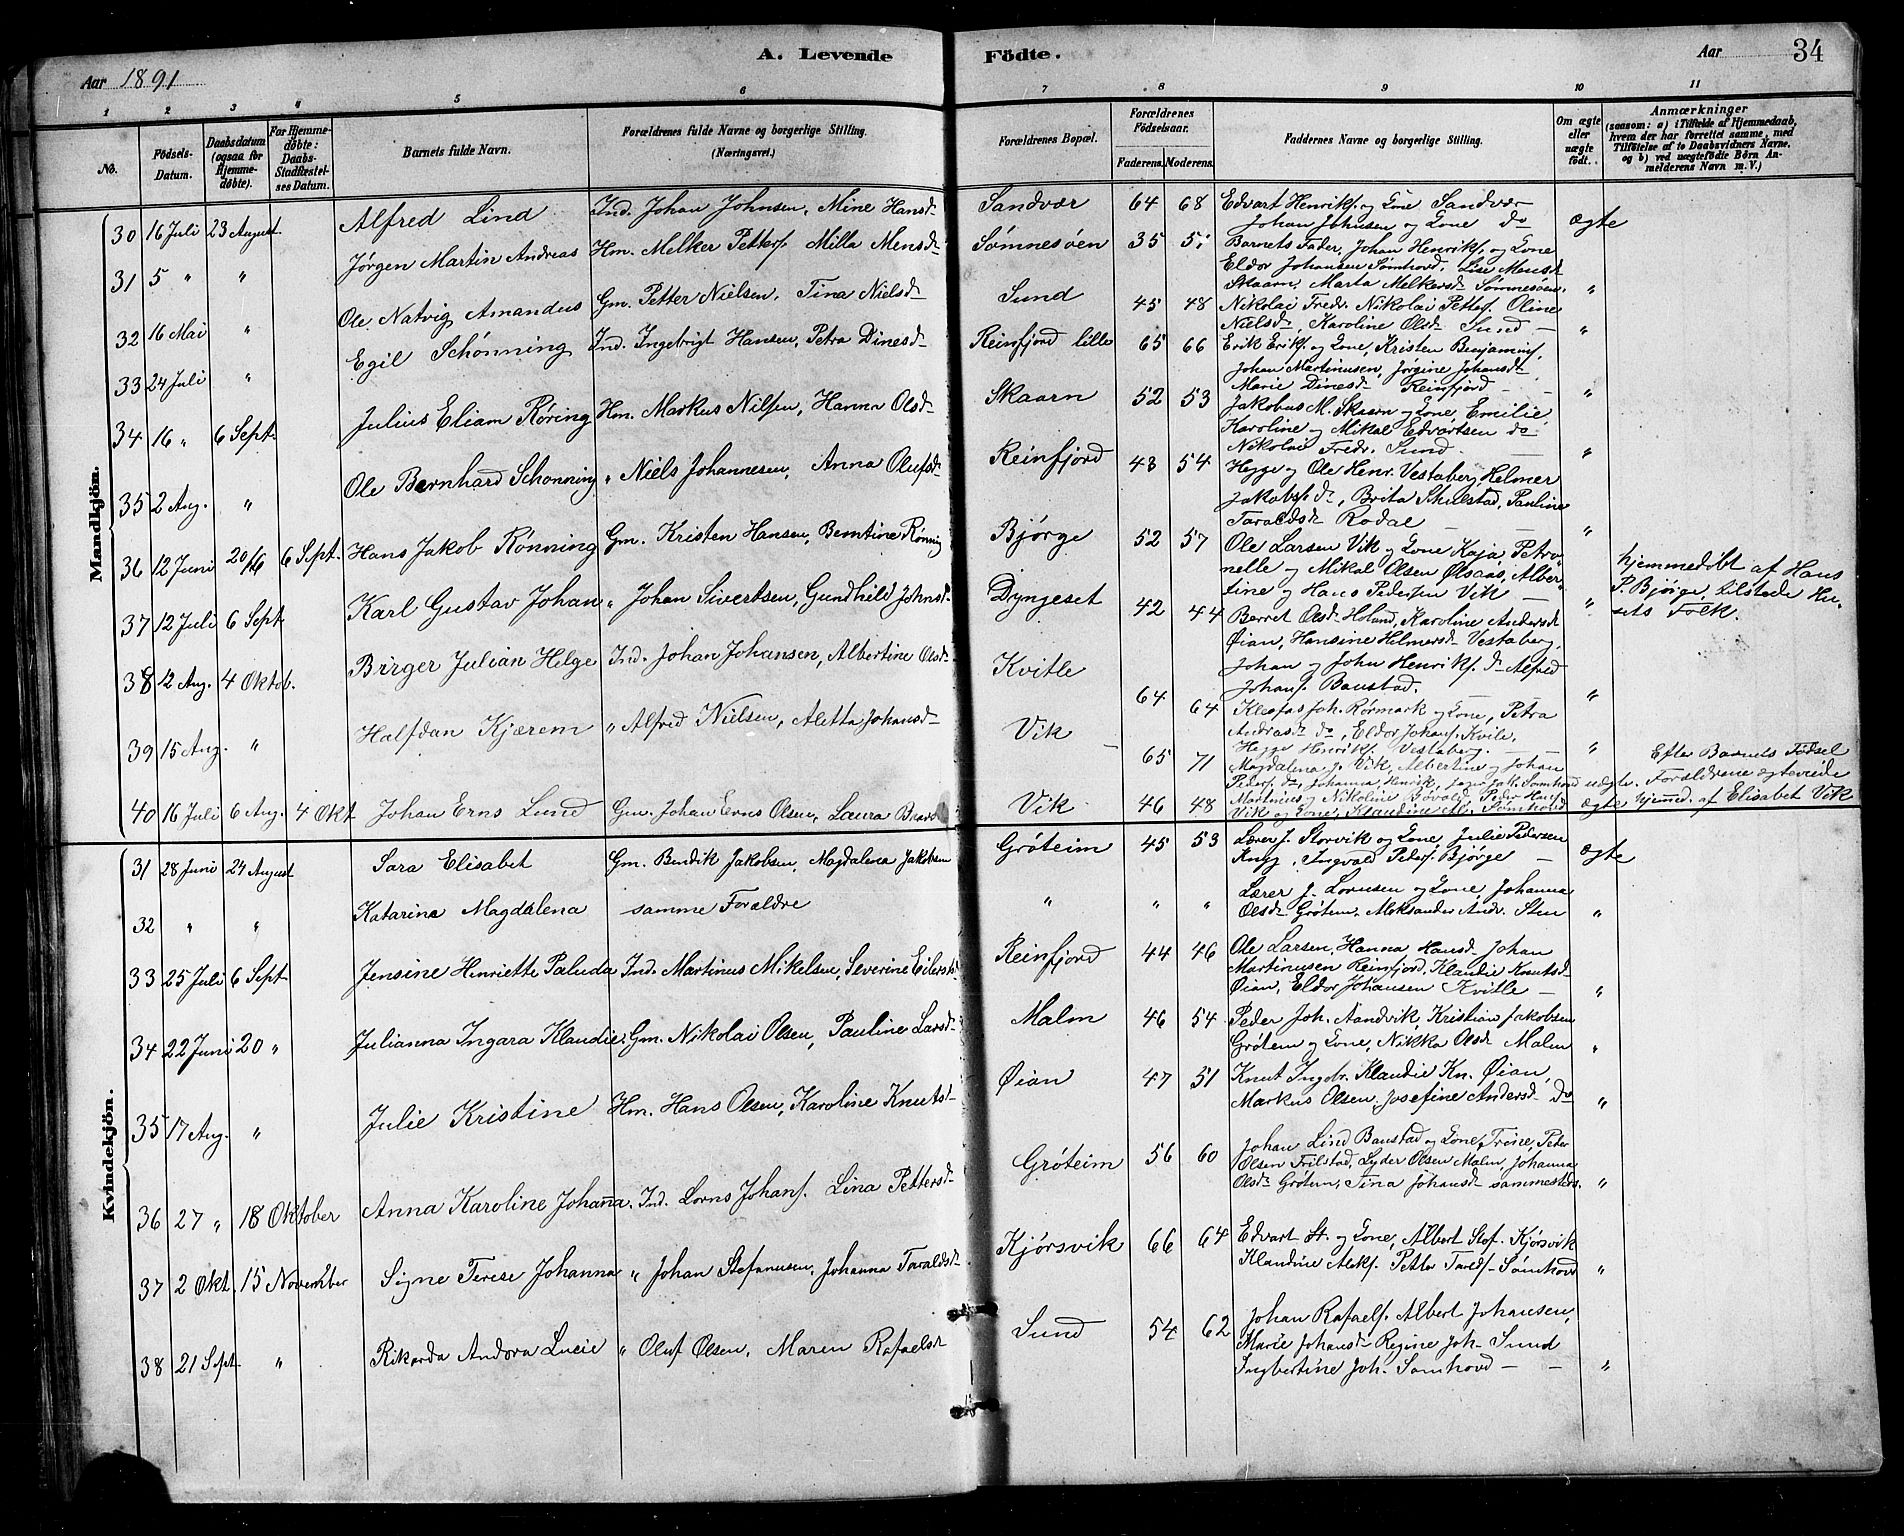 Aar 1891
A. Levende Födte.
Aar 34
1 2 3 4 5 6 7 8 9 10 11
No.
Födsels-Datum.
Daabsdatum (ogsaa for Hjemmedøbte).
For Hjemmedøbte: Daabs-Stadfæstelses Datum.
Barnets fulde Navn.
Forældrenes fulde Navne og borgerlige Stilling. (Næringsvei.)
Forældrenes Bopæl.
Forældrenes Födselsaar.
Faderens. Moderens.
Faddernes Navne og borgerlige Stilling.
Om ægte eller uægte født.
Anmærkninger (saasom: a) i Tilfælde af Hjemmedaab, hvem der har forrettet samme, med Tilföielse af to Daabsvidners Navne, og b) ved uægtefödte Börn Anmelderens Navn m. V.)
Mandkjön.
30 16 Juli 23 August Alfred Lind Ind. Johan Johnsen, Mine Hansd Sandvær 64 68 Edvart Henriks. og Kone Sandvær Johan Johnsen og Kone do ægte
31 5 " " Jørgen Martin Andreas Hm. Melker Petters. Milla Mensd Sømnesøen 35 Barnets Fader, Johan Henriks. og Kone Eldor Johansen Sømhovd, Lise Mensd Skaarn, Marta Melkersd Sømnesøen. "
32 16 Mai " Ole Natvig Amandus Gm. Petter Nielsen, Tina Nielsd Sund 45 48 Nikolai Fredr. Nikolai Petters. Oline Nielsd, Karoline Olsd Sund "
33 24 Juli " Egil Schønning Ind. Ingebrigt Hansen, Petra Dinesd Reinfjord lille 65 66 Erik Eriks. og Kone, Kristen Benjamins. Johan Martinusen, Jørgine Johansd Marie Dinesd Reinfjord "
34 16 " 6 Sept. Julius Eliam Røring Hm. Markus Nilsen, Hanna Olsd Skaarn 52 53 Jakobus M. Skaarn og Kone, Emilie, Karoline og Mikal Edvartsen do Nikolai Fredr. Sund "
35 2 Aug. " Ole Bernhard Schønning " Niels Johannesen, Anna Olufsd Reinfjord 48 54 Hegge og Ole Henr. Vestaberg, Helmer Jakobs. do, Brita Skulstad, Pauline Taraldsd Rodal "
36 12 Juni 20/6 6 Sept. Hans Jakob Rønning Gm. Kristen Hansen, Berntine Rønning Bjørge 52 57 Ole Larsen Vik og Kone Kaja Petronelle og Mikal Olsen Ølsaas, Albertine og Hans Pedersen Vik " hjemmedøbt af Hans P. Bjørge, tilstede Husets Folk.
37 12 Juli 6 Sept. Karl Gustav Johan " Johan Sivertsen, Gundhild Johnsd Dyngeset 42 44 Berret Olsd Holand, Karoline Andersd Øian, Hansine Helmersd Vestaberg,
38 12 Aug. 4 Oktob. Birger Julian Helge Ind. Johan Johansen, Albertine Olsd Kvitle 64 64 Johan og John Henriks. do Alfred Johans. Baustad. Klesfas Joh. Rørmark og Kone, Petra Andrasd do, Eldor Johans. Kvitle "
39 15 Aug. " Halfdan Kjærem " Alfred Nielsen, Aletta Johansd Vik 65 71 Hegge Henriks. Vestaberg. Magdalena J. Vik, Albertine og Johan Peders. do, Johanna Henrik, Jak. Sømhovd uægte. Efter Barnets Fødsel Forældrene ægteviede
40 16 Juli 6 Aug. 4 Okt Johan Erns Lund Gm. Johan Erns Olsen, Laura Vik 46 48 Martinus og Nikoline Bøvold, Peder Hans. Vik og Kone, Klaudine Sømhovd ægte hjemmed. af Elisabet Vik
Kvindekjön.
31 28 Juni 24 August Sara Elisabet Gm. Bendik Jakobsen, Magdalena Jakobsen Grøteim 45 53 Lærer J. Storvik og Kone, Julie Pedersen Ingvald Peders. Bjørge ægte
32 " " Katarina Magdalena samme Forældre " " " Lærer J. Lornsen og Kone Johanna Olsd Grøtem, Aleksander Andr. Sten "
33 25 Juli 6 Sept Jensine Henriette Paluda Ind. Martinus Mikelsen, Severine Eilertsd Reinfjord 44 46 Ole Larsen, Hanna Hansd Johan Martinusen Reinfjord, Klaudie Knutsd Øian, Eldor Johansen Kvitle "
34 22 Juni 20 " Julianna Ingara Klaudie Gm. Nikolai Olsen, Pauline Larsd Malm 46 54 Peder Joh. Aandvik, Kristian Jakobsen Grøtem og Kone, Nikka Olsd Malm "
35 17 Aug. " Julie Kristine Hm. Hans Olsen, Karoline Knutsd Øian 47 51 Knut Ingbr. Klaudie Kn. Øian, Markus Olsen, Josefine Andersd do "
36 27 " 18 Oktober Anna Karoline Johanna Ind. Lorns Johans. Lina Pettersd Grøteim 56 60 Johan Lind Baustad og Kone, Trine Peder Olsen Frilstad, Lyder Olsen Malm, Johanna Olsd Grøtem, Tina Johansd sammesteds. "
37 2 Okt. 15 November Signe Terese Johanna " Johan Stefanusen, Johanna Taraldsd Kjørsvik 66 64 Edvart St. og Kone, Albert Stef. Kjørsvik Klaudine Aleks. Petter Sømhovd "
38 21 Sept. " Rikarda Andora Lucie " Oluf Olsen, Maren Rafaelsd Sund 54 62 Johan Rafaels. Albert Johansen, Marie Johansd Regine Joh. Sund Ingbertine Joh. Sømhovd "